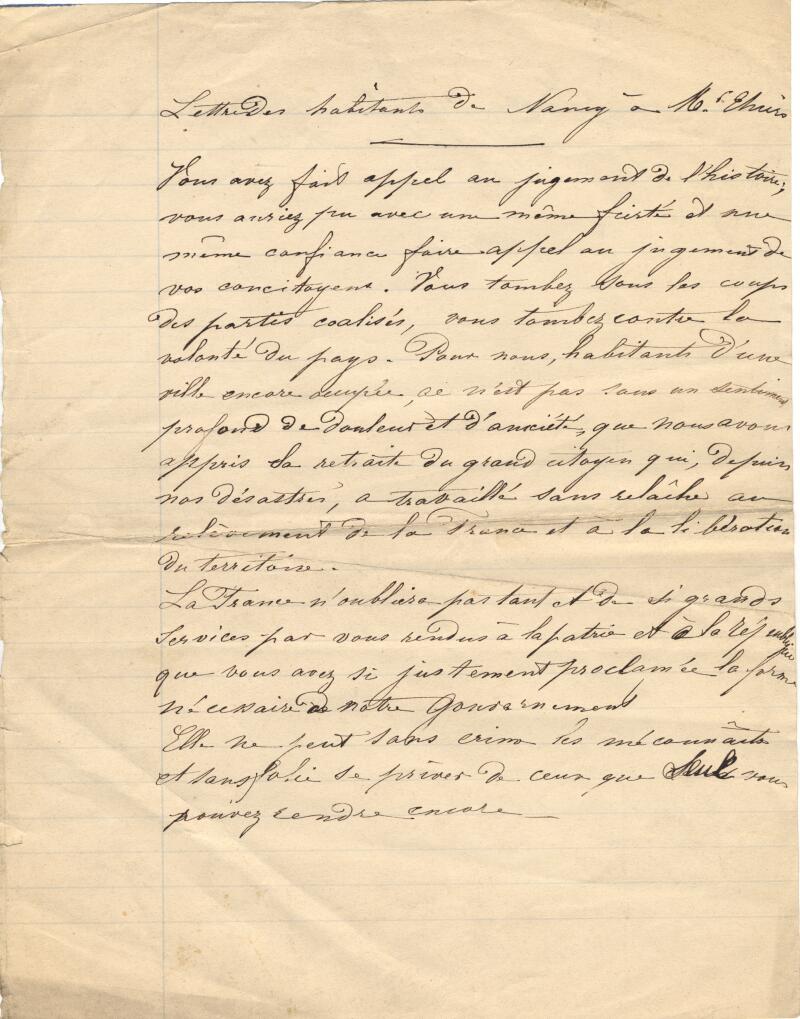 Lettre des habitants de Nancy à Mr Thiers
Vous avez fait appel au jugement de l'histoire,
vous auriez pu avec une même fierté et une
même confiance faire appel au jugement de
vos concitoyens. Vous tombez sous les coups
des partis coalisés, vous tombez contre la
volonté du pays. Pour nous, habitants d'une
ville encore occupée, ce n'est pas sans un sentiment
profond de douleur et d'anxiété, que nous avons
appris la retraite du grand citoyen qui, depuis
nos désastres, a travaillé sans relâche au
relèvement de la France et à la libération
du territoire.
La France n'oubliera pas tant et de si grands
services par vous rendus à la patrie et à la République
que vous avez si justement proclamée la forme
nécessaire de notre Gouvernement
Elle ne peut sans crime les méconnaître
et sans folie se priver de ceux que seul vous
pouvez rendre encore